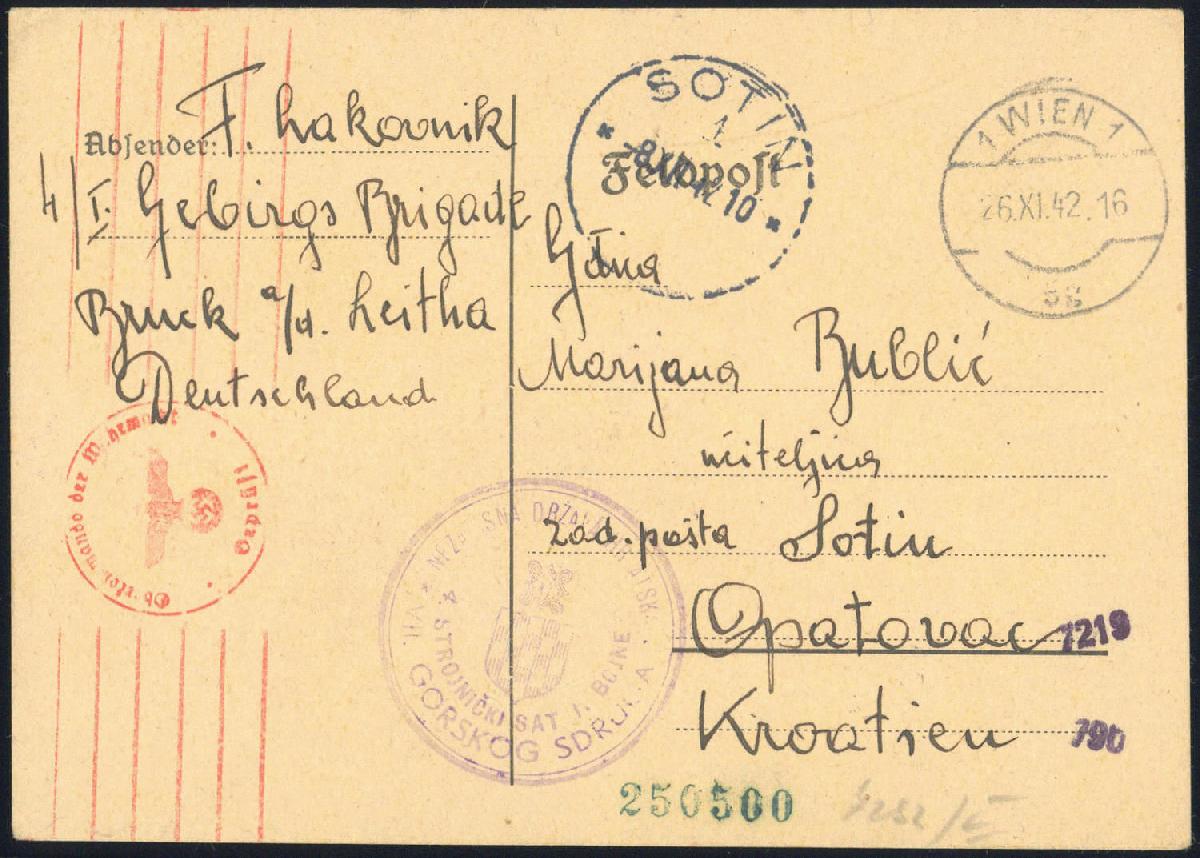 Absender: F. Lakovnik
4/I. Gebirgs Brigade
Bruck a/d. Leitha
Deutschland
Oberkommando der Wehrmacht
Geprüft
SOTIN
1
Feldpost
1 WIEN 1
26.XI.42.16
Gđina
Marijana Bublić
učiteljica
zad. pošta Sotin
Opatovac
7219
Kroatien
790
NEZAVISNA DRŽAVA HRVATSKA
4. STROJNIČKI SAT I. BOJNE
GORSKOG SDRUGA
250500